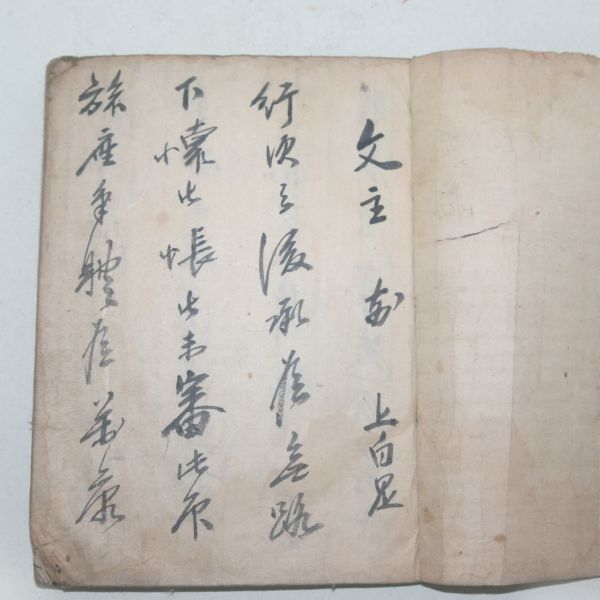 文主 前 上白是
行次之後承候無路
下懷此悵此未審此辰
旅座氣體候萬康